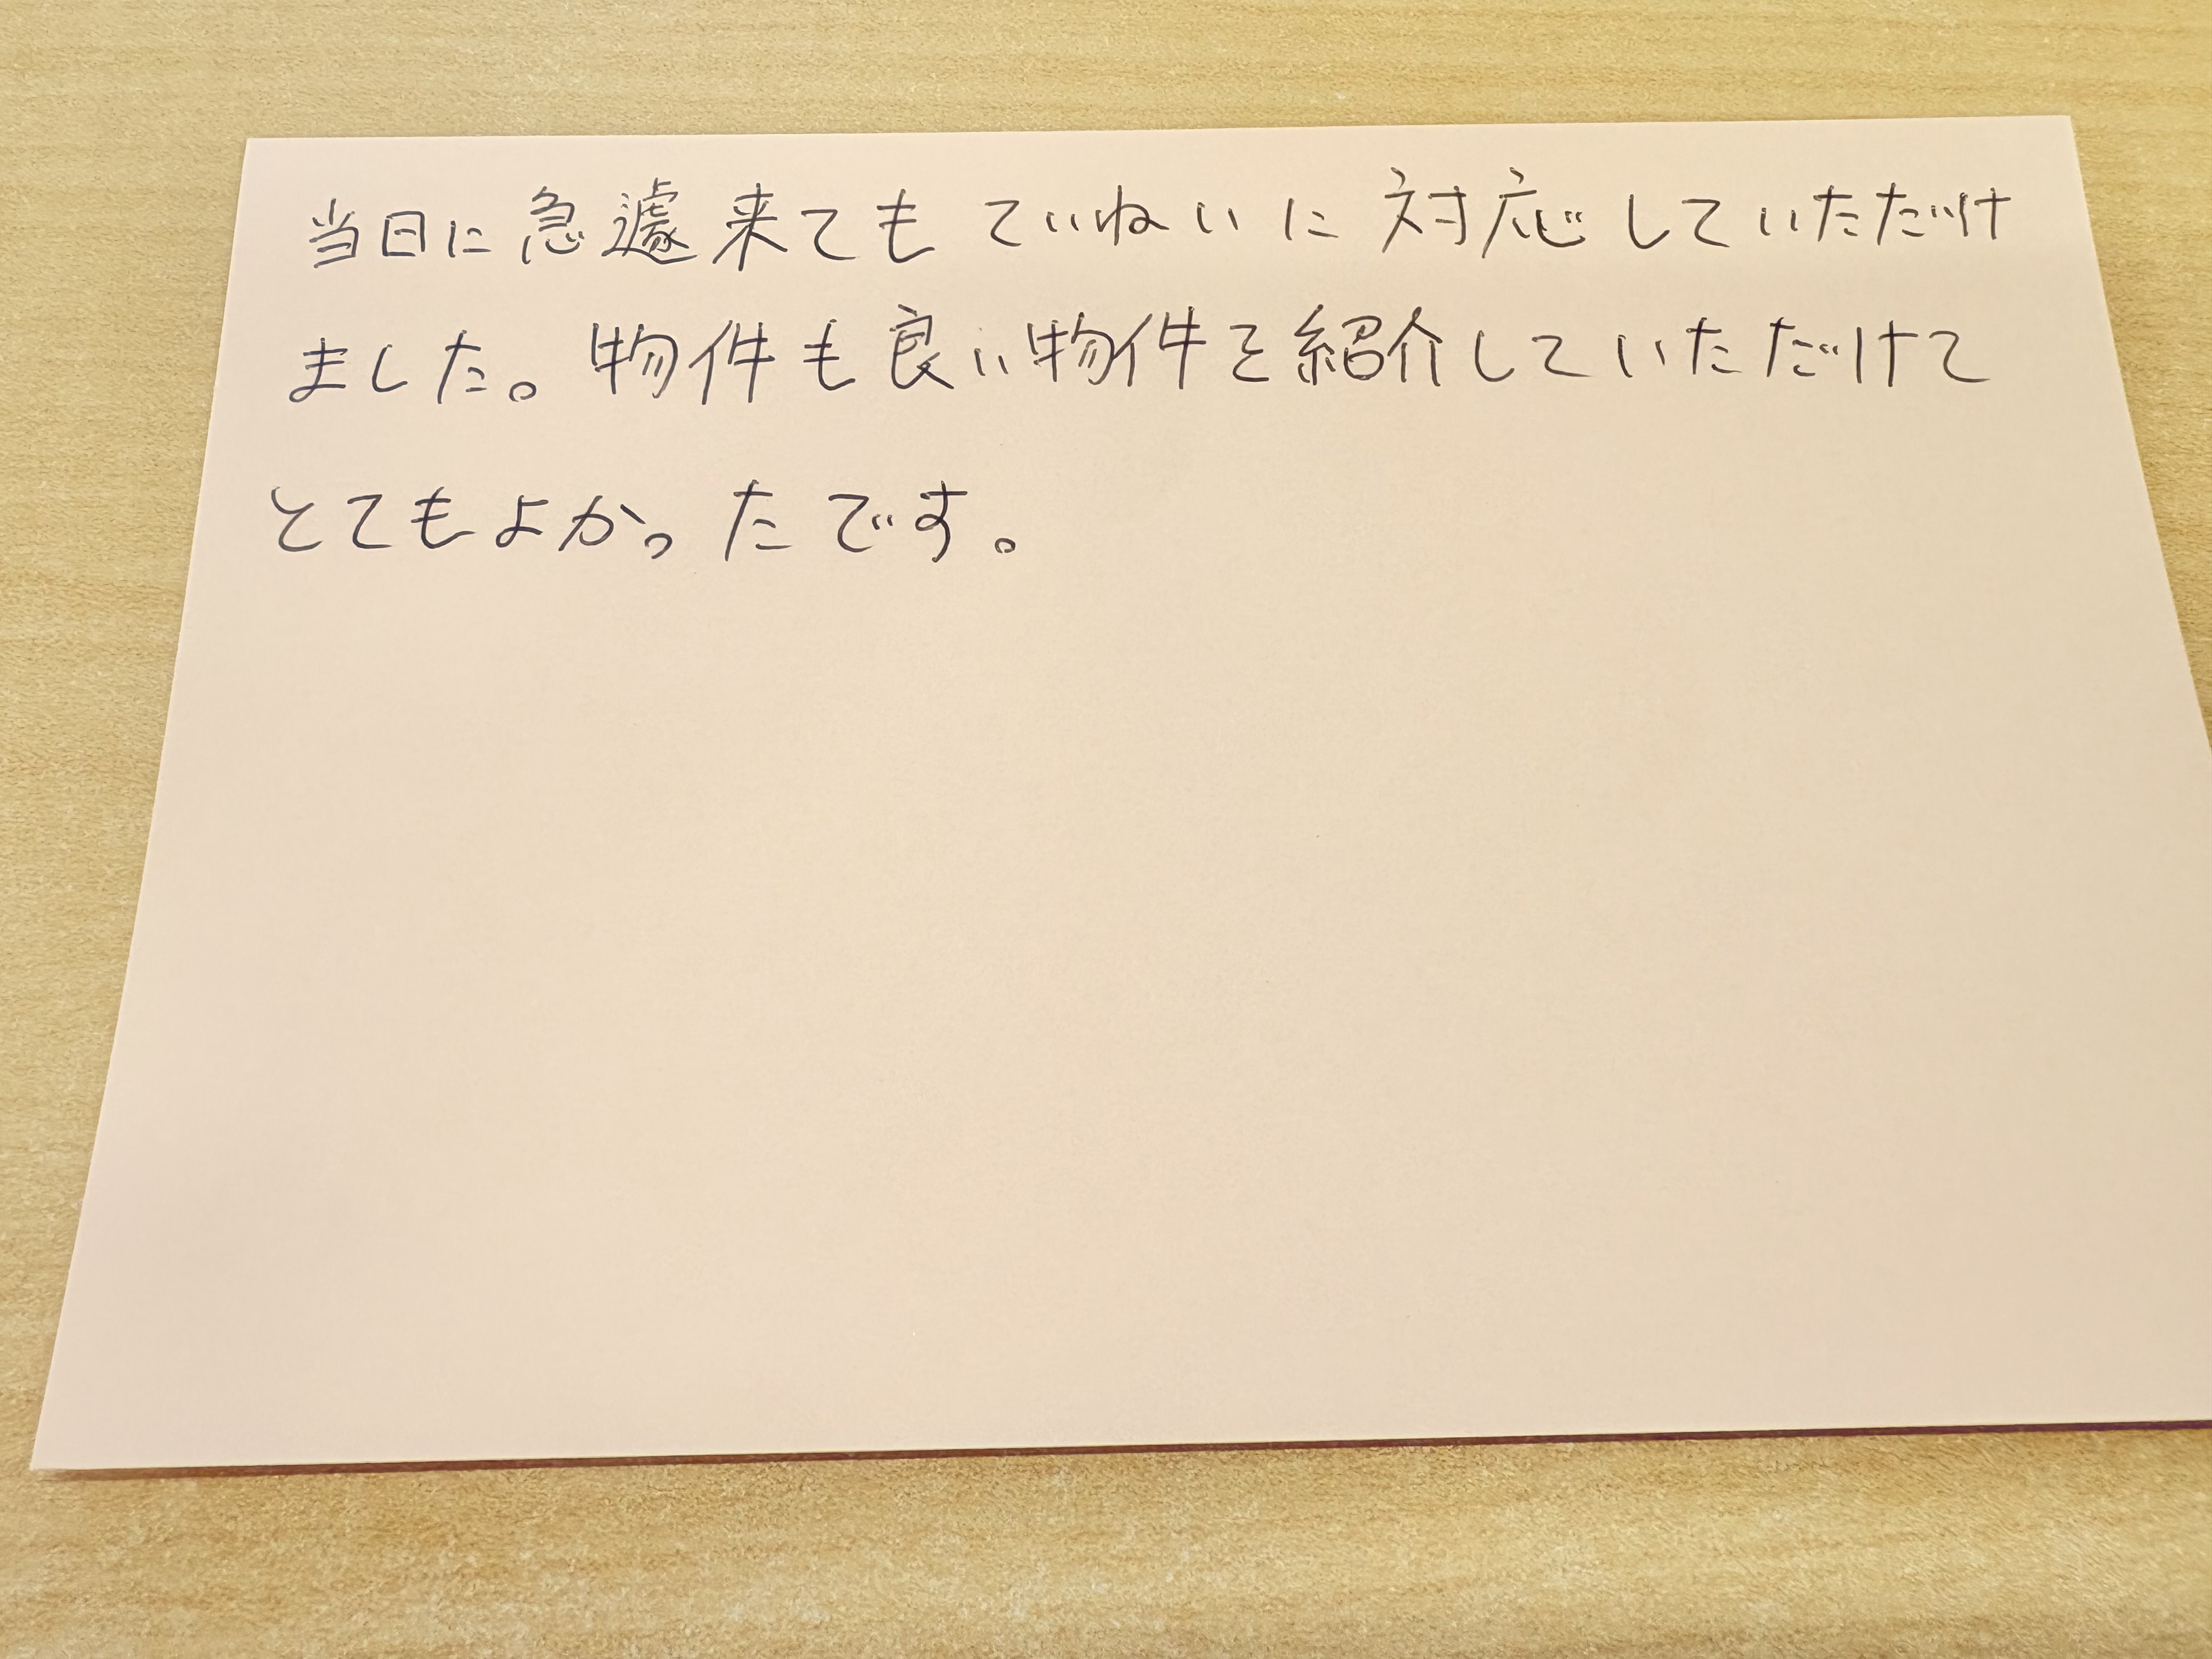 当日に急遽来ても ていねいに対応していただけ
ました。物件も良い物件を紹介していただけて
とてもよかったです。